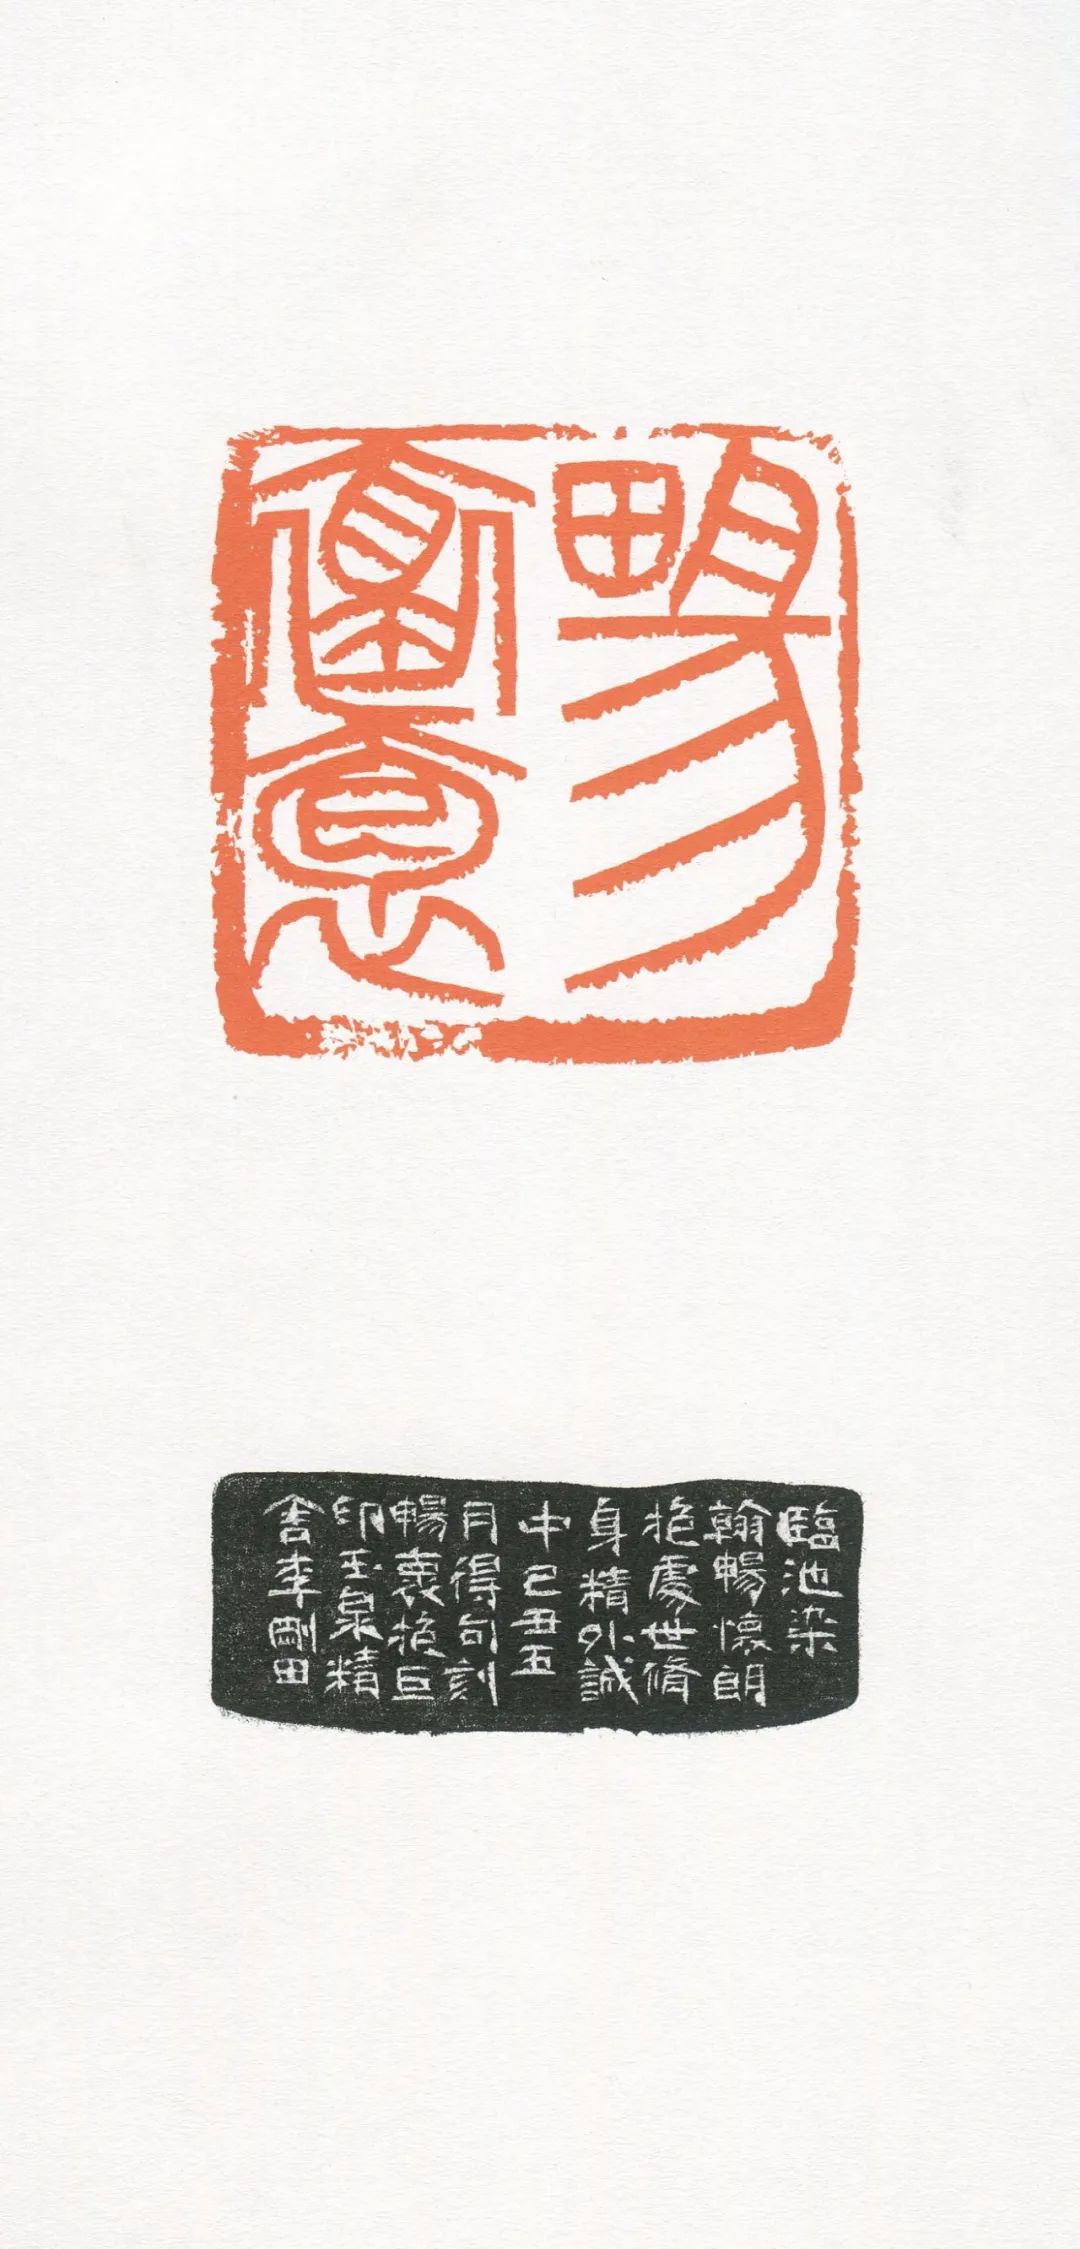 畼
臨池染
翰暢懷朗
抱處世脩
身精外誠
中己丑五
月得句刻
暢衷抱巨
印玉泉精
舍李剛田